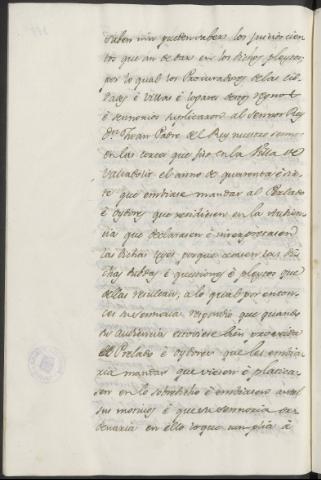 saben nin pueden saber los juicios cier
tos que an de dar en los dichos pleytos
por lo qual los Procuradores de las cib
dades è villas è logares destos reynos
è señorios suplicaron al señor Rey
Dn. Juan Padre del Rey nuestro señor
en las cortes que fizo en la Villa de
Valladolid el anno de quarenta è sie
te que embiase mandar al Perlado
è oydores que residiesen en la Audien
cia que declarasen è interpretasen
las dichas leyes porque cesasen las di
chas dubdas è questiones è pleytos que
dellas resultan, a lo qual por enton
ces su señoria respondio que quando
su Audiencia estoviese bien proveida
de Perlado è oydores que les embia
ria mandar que viesen è platica
sen en lo sobredicho è embiasen ante el
sus motivos è que su señoria or
denaria en ello lo que cumplia à